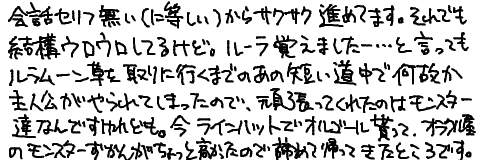 会話セリフ無い(に等しい)からサクサク進めてます。それでも
結構ウロウロしてるけど。ルーラ覚えました……と言っても
ルラムーン草を取りに行くまでのあの短い道中で何故か
主人公がやられてしまったので、頑張ってくれたのはモンスター
達なんですけれども。今ラインハットでオルゴール貰って、オラクル屋
のモンスターずかんがちょっと高かったので諦めて帰ってきたところです。